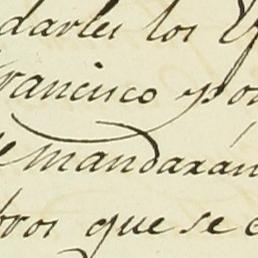 darles los
rancisco y
mandarán
que se